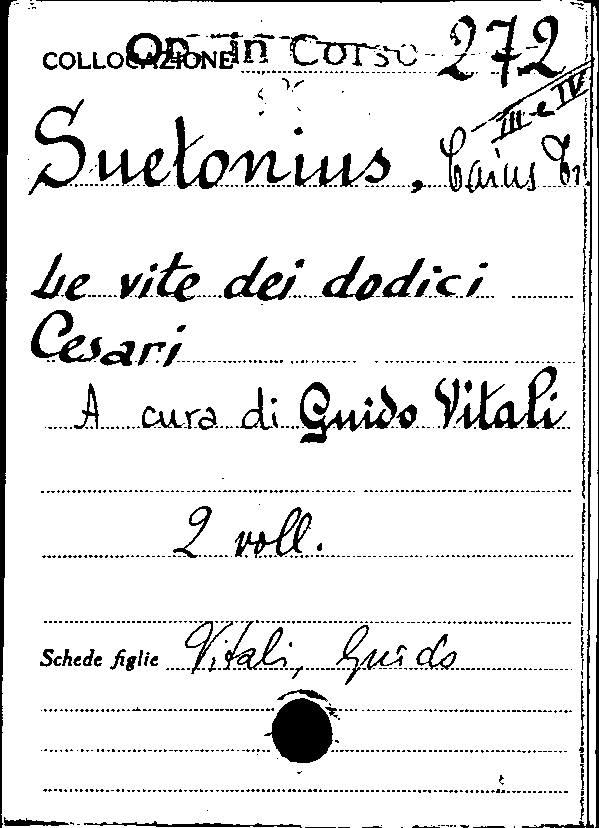 COLLOCAZIONE Op. in Corso 272
III e IV
Suetonius, Caius Tr.
Le vite dei dodici
Cesari
A cura di Guido Vitali
2 voll.
Schede figlie Vitali, Guido